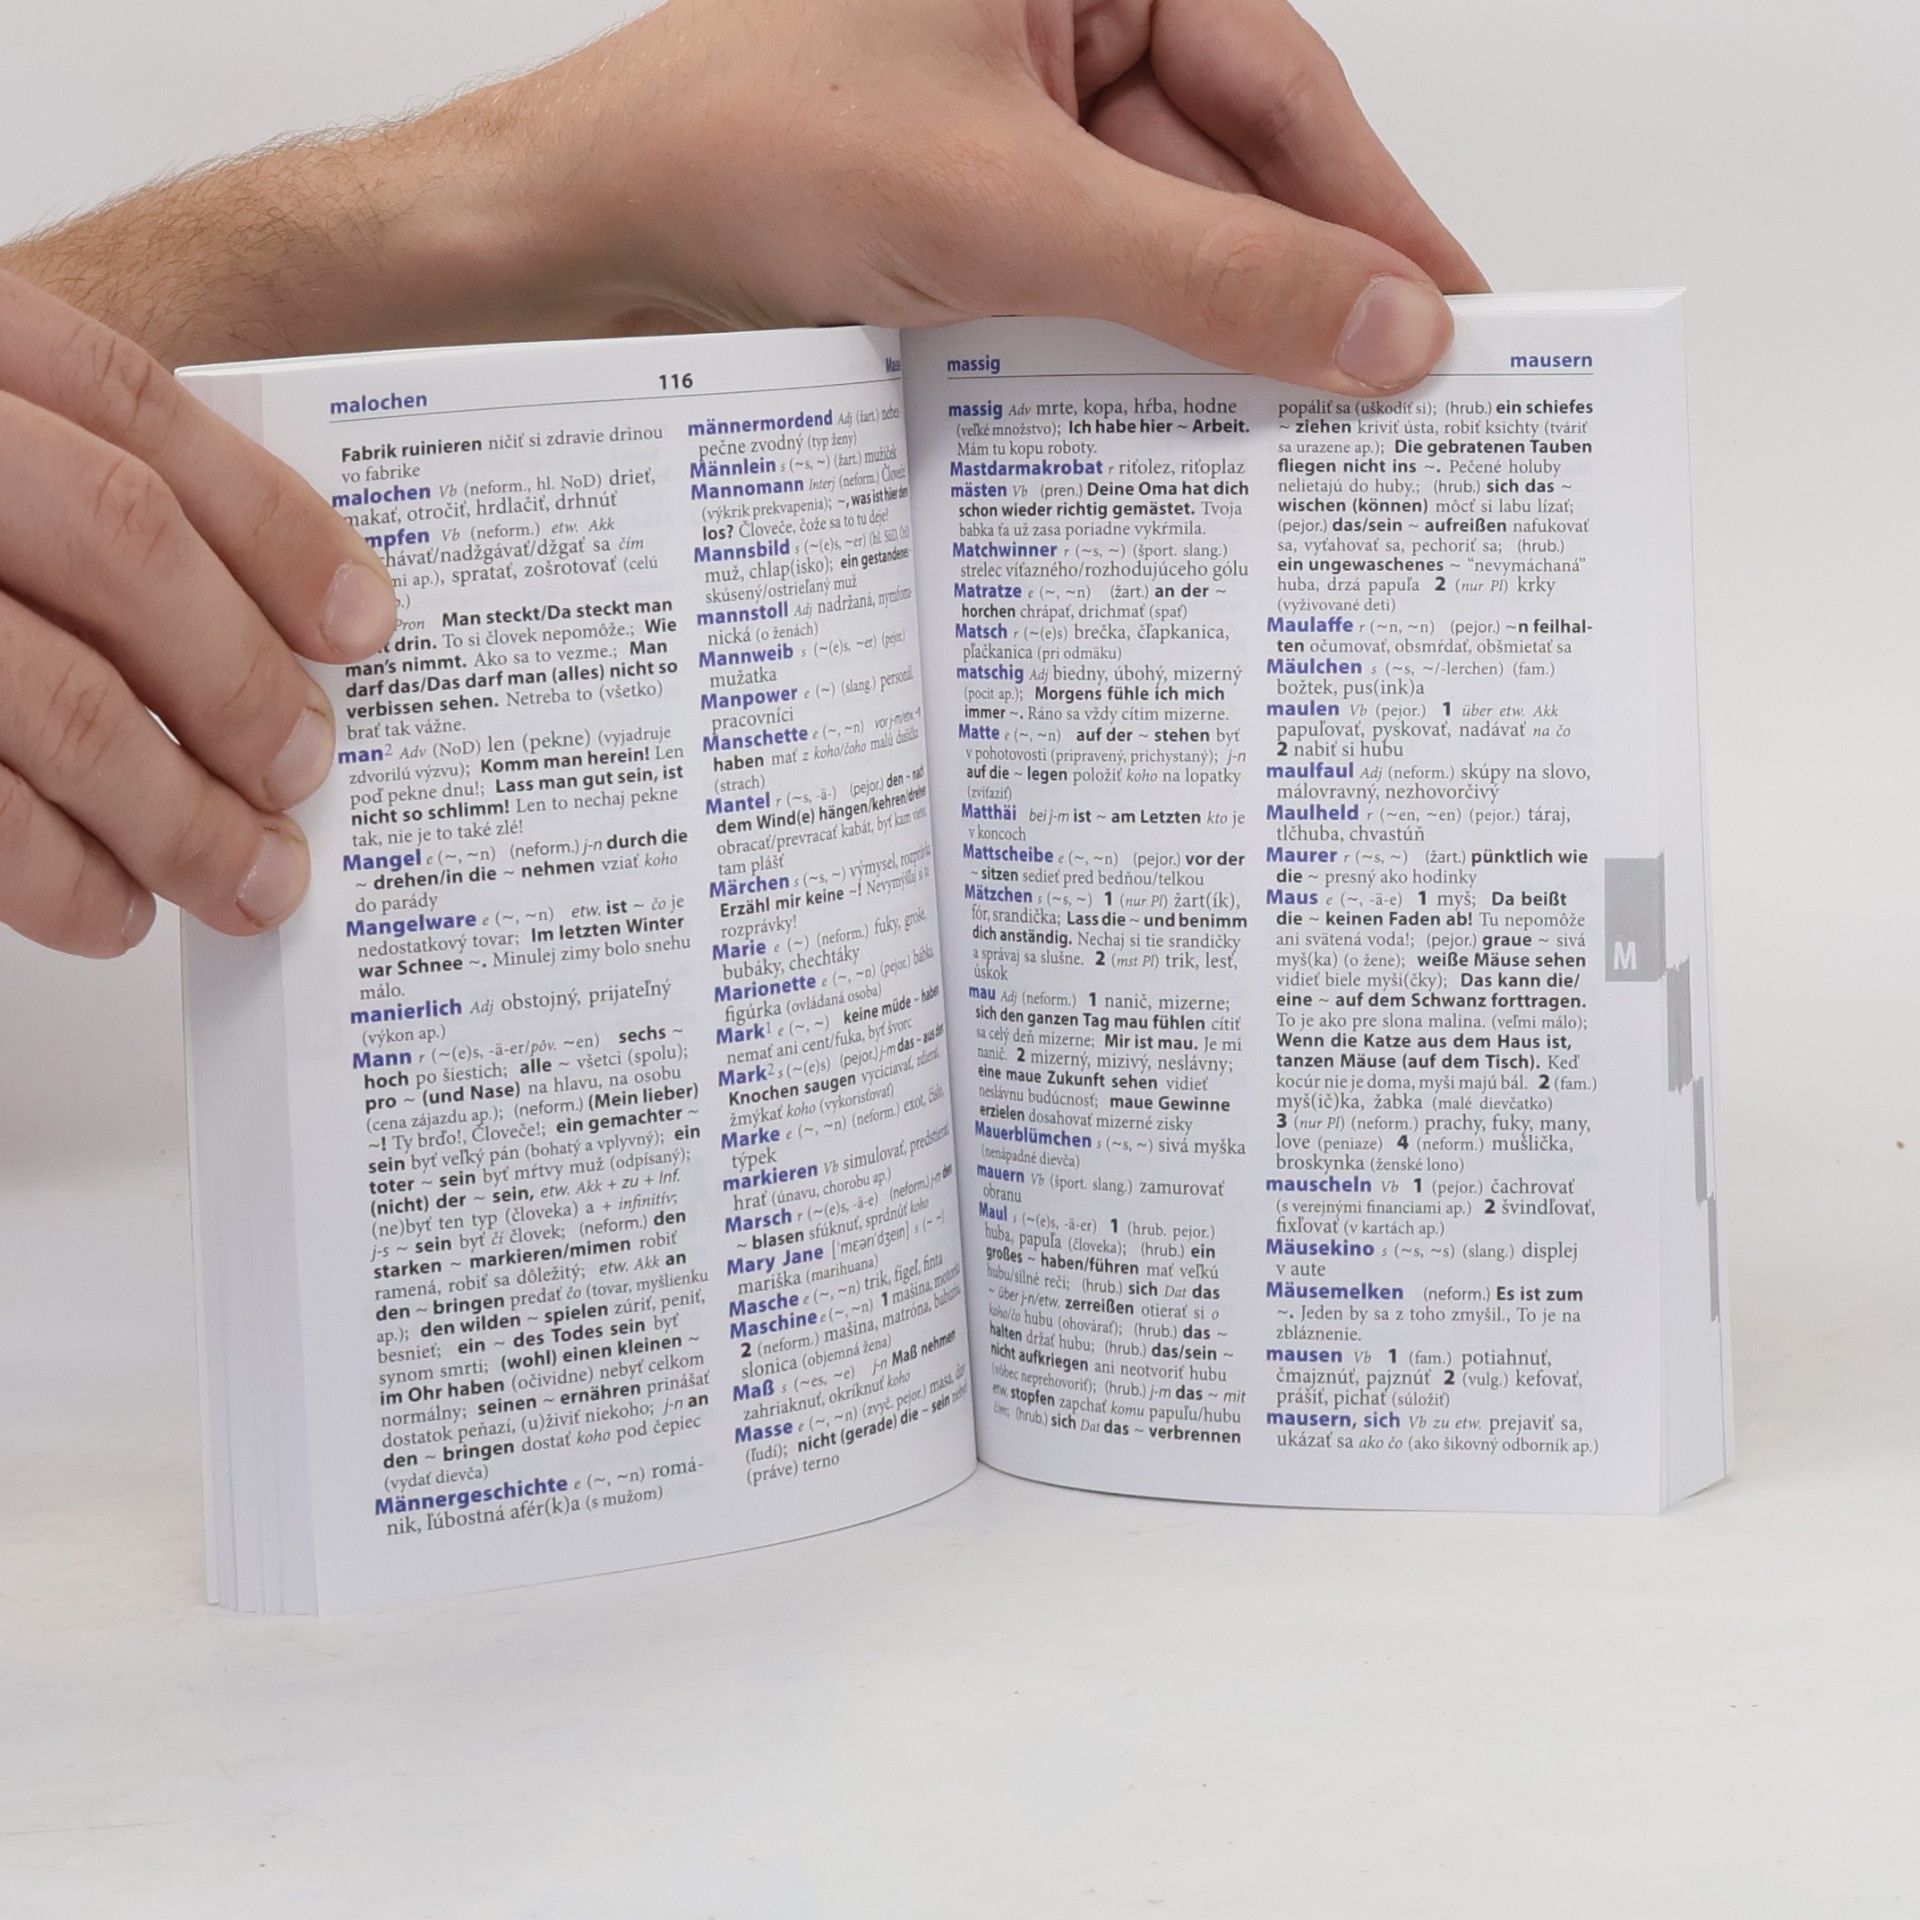 malochen
116
Fabrik ruinieren ničiť si zdravie drinou
vo fabrike
malochen Vb (neform., hl. NoD) drieť,
makať, otročiť, hrdlačiť, drhnúť
mpfen Vb (neform.) etw. Akk
chávať/nadžgávať/džgať sa čím
mi ap.), spratať, zošrotovať (celú
Pron Man steckt/Da steckt man
t drin. To si človek nepomôže.; Wie
man's nimmt. Ako sa to vezme.; Man
darf das/Das darf man (alles) nicht so
verbissen sehen. Netreba to (všetko)
brať tak vážne.
man² Adv (NoD) len (pekne) (vyjadruje
zdvorilú výzvu); Komm man herein! Len
poď pekne dnu!; Lass man gut sein, ist
nicht so schlimm! Len to nechaj pekne
tak, nie je to také zlé!
Mangel e (~, ~n) (neform.) j-n durch die
~ drehen/in die ~ nehmen vziať koho
do parády
Mangelware e (~, ~n) etw. ist ~ čo je
nedostatkový tovar; Im letzten Winter
war Schnee ~. Minulej zimy bolo snehu
málo.
manierlich Adj obstojný, prijateľný
(výkon ap.)
Mann r (~(e)s, -ä-er/pôv. ~en) sechs ~
hoch po šiestich; alle ~ všetci (spolu);
pro ~ (und Nase) na hlavu, na osobu
(cena zájazdu ap.); (neform.) (Mein lieber)
~! Ty brďo!, Človeče!; ein gemachter ~
sein byť veľký pán (bohatý a vplyvný); ein
toter ~ sein byť mŕtvy muž (odpísaný);
(nicht) der ~ sein, etw. Akk + zu + Inf.
(ne)byť ten typ (človeka) a + infinitív;
j-s ~ sein byť čí človek; (neform.) den
starken ~ markieren/mimen robiť
ramená, robiť sa dôležitý; etw. Akk an
den ~ bringen predať čo (tovar, myšlienku
ap.); den wilden ~ spielen zúriť, peniť,
besnieť; ein ~ des Todes sein byť
synom smrti; (wohl) einen kleinen ~
im Ohr haben (očividne) nebyť celkom
normálny; seinen ~ ernähren prinášať
dostatok peňazí, (u)živiť niekoho; j-n an
den ~ bringen dostať koho pod čepiec
(vydať dievča)
Männergeschichte e (~, ~n) romá-
nik, ľúbostná afér(k)a (s mužom)
männermordend Adj (žart.) nebez-
pečne zvodný (typ ženy)
Männlein s (~s, ~) (žart.) mužíček
Mannomann Interj (neform.) Človeče!
(výkrik prekvapenia); ~, was ist hier denn
los? Človeče, čože sa to tu deje?
Mannsbild s (~(e)s, ~er) (hl. SüD,
muž, chlap(isko); ein gestandenes ~
skúsený/ostrieľaný muž
mannstoll Adj nadržaná, nymfoma-
nická (o ženách)
Mannweib s (~(e)s, ~er) (pejor.)
mužatka
Manpower e (~) (slang.) personál,
pracovníci
Manschette e (~, ~n) vor j-m/etw. ~n
haben mať z koho/čoho malú dušičku
(strach)
Mantel r (~s, -ä-) (pejor.) den ~ nach
dem Wind(e) hängen/kehren/drehen
obracať/prevracať kabát, byť kam vietor,
tam plášť
Märchen s (~s, ~) výmysel, rozprávka
Erzähl mir keine ~! Nevymýšľaj si tu
rozprávky!
Marie e (~) (neform.) fuky, groše,
bubáky, chechtáky
Marionette e (~, ~n) (pejor.) bábka,
figúrka (ovládaná osoba)
Mark¹ e (~, ~) keine müde ~ haben
nemať ani cent/fuka, byť švorc
Mark² s (~(e)s) (pejor.) j-m das ~ aus den
Knochen saugen vyciciavať, zdierať,
žmýkať koho (vykorisťovať)
Marke e (~, ~n) (neform.) exot, číslo,
týpek
markieren Vb simulovať, predstierať,
hrať (únavu, chorobu ap.)
Marsch r (~(e)s, -ä-e) (neform.) j-m den
~ blasen sfúknuť, sprdnúť koho
Mary Jane [ˈmɛəriˈdʒein] s (~ ~)
mariška (marihuana)
Masche e (~, ~n) trik, figeľ, finta
Maschine e (~, ~n) 1 mašina, motorka
2 (neform.) mašina, matróna, babizňa,
slonica (objemná žena)
Maß s (~es, ~e) j-n Maß nehmen
zahriaknuť, okríknuť koho
Masse e (~, ~n) (zvyč. pejor.) masa, dav
(ľudí); nicht (gerade) die ~ sein nebyť
(práve) terno
massig
mausern
massig Adv mrte, kopa, hŕba, hodne
(veľké množstvo); Ich habe hier ~ Arbeit.
Mám tu kopu roboty.
Mastdarmakrobat r riťolez, riťoplaz
mästen Vb (pren.) Deine Oma hat dich
schon wieder richtig gemästet. Tvoja
babka ťa už zasa poriadne vykŕmila.
Matchwinner r (~s, ~) (šport. slang.)
strelec víťazného/rozhodujúceho gólu
Matratze e (~, ~n) (žart.) an der ~
horchen chrápať, drichmať (spať)
Matsch r (~(e)s) brečka, čľapkanica,
pľačkanica (pri odmäku)
matschig Adj biedny, úbohý, mizerný
(pocit ap.); Morgens fühle ich mich
immer ~. Ráno sa vždy cítim mizerne.
Matte e (~, ~n) auf der ~ stehen byť
v pohotovosti (pripravený, prichystaný); j-n
auf die ~ legen položiť koho na lopatky
(zvíťaziť)
Matthäi bei j-m ist ~ am Letzten kto je
v koncoch
Mattscheibe e (~, ~n) (pejor.) vor der
~ sitzen sedieť pred bedňou/telkou
Mätzchen s (~s, ~) 1 (nur Pl) žart(ík),
fór, srandička; Lass die ~ und benimm
dich anständig. Nechaj si tie srandičky
a správaj sa slušne. 2 (mst Pl) trik, lesť,
úskok
mau Adj (neform.) 1 nanič, mizerne;
sich den ganzen Tag mau fühlen cítiť
sa celý deň mizerne; Mir ist mau. Je mi
nanič. 2 mizerný, mizivý, neslávny;
eine maue Zukunft sehen vidieť
neslávnu budúcnosť; maue Gewinne
erzielen dosahovať mizerné zisky
Mauerblümchen s (~s, ~) sivá myška
(nenápadné dievča)
mauern Vb (šport. slang.) zamurovať
obranu
Maul s (~(e)s, -ä-er) 1 (hrub. pejor.)
huba, papuľa (človeka); (hrub.) ein
großes ~ haben/führen mať veľkú
hubu/silné reči; (hrub.) sich Dat das
~ über j-n/etw. zerreißen otierať si o
koho/čo hubu (ohovárať); (hrub.) das ~
halten držať hubu; (hrub.) das/sein ~
nicht aufkriegen ani neotvoriť hubu
(vôbec neprehovoriť); (hrub.) j-m das ~ mit
etw. stopfen zapchať komu papuľu/hubu
čím; (hrub.) sich Dat das ~ verbrennen
popáliť sa (uškodiť si); (hrub.) ein schiefes
~ ziehen kriviť ústa, robiť ksichty (tváriť
sa urazene ap.); Die gebratenen Tauben
fliegen nicht ins ~. Pečené holuby
nelietajú do huby.; (hrub.) sich das ~
wischen (können) môcť si labu lízať;
(pejor.) das/sein ~ aufreißen nafukovať
sa, vyťahovať sa, pechoriť sa; (hrub.)
ein ungewaschenes ~ "nevymáchaná"
huba, drzá papuľa 2 (nur Pl) krky
(vyživované deti)
Maulaffe r (~n, ~n) (pejor.) ~n feilhal-
ten očumovať, obsmŕdať, obšmietať sa
Mäulchen s (~s, ~/-lerchen) (fam.)
božtek, pus(ink)a
maulen Vb (pejor.) 1 über etw. Akk
papuľovať, pyskovať, nadávať na čo
2 nabiť si hubu
maulfaul Adj (neform.) skúpy na slovo,
málovravný, nezhovorčivý
Maulheld r (~en, ~en) (pejor.) táraj,
tlčhuba, chvastúň
Maurer r (~s, ~) (žart.) pünktlich wie
die ~ presný ako hodinky
Maus e (~, -ä-e) 1 myš; Da beißt
die ~ keinen Faden ab! Tu nepomôže
ani svätená voda!; (pejor.) graue ~ sivá
myš(ka) (o žene); weiße Mäuse sehen
vidieť biele myši(čky); Das kann die/
eine ~ auf dem Schwanz forttragen.
To je ako pre slona malina. (veľmi málo);
Wenn die Katze aus dem Haus ist,
tanzen Mäuse (auf dem Tisch). Keď
kocúr nie je doma, myši majú bál. 2 (fam.)
myš(ič)ka, žabka (malé dievčatko)
3 (nur Pl) (neform.) prachy, fuky, many,
love (peniaze) 4 (neform.) mušlička,
broskynka (ženské lono)
mauscheln Vb 1 (pejor.) čachrovať
(s verejnými financiami ap.) 2 švindľovať,
fixľovať (v kartách ap.)
Mäusekino s (~s, ~s) (slang.) displej
v aute
Mäusemelken (neform.) Es ist zum
~. Jeden by sa z toho zmyšil., To je na
zbláznenie.
mausen Vb 1 (fam.) potiahnuť,
čmajznúť, pajznúť 2 (vulg.) kefovať,
prášiť, pichať (súložiť)
mausern, sich Vb zu etw. prejaviť sa,
ukázať sa ako čo (ako šikovný odborník ap.)
M